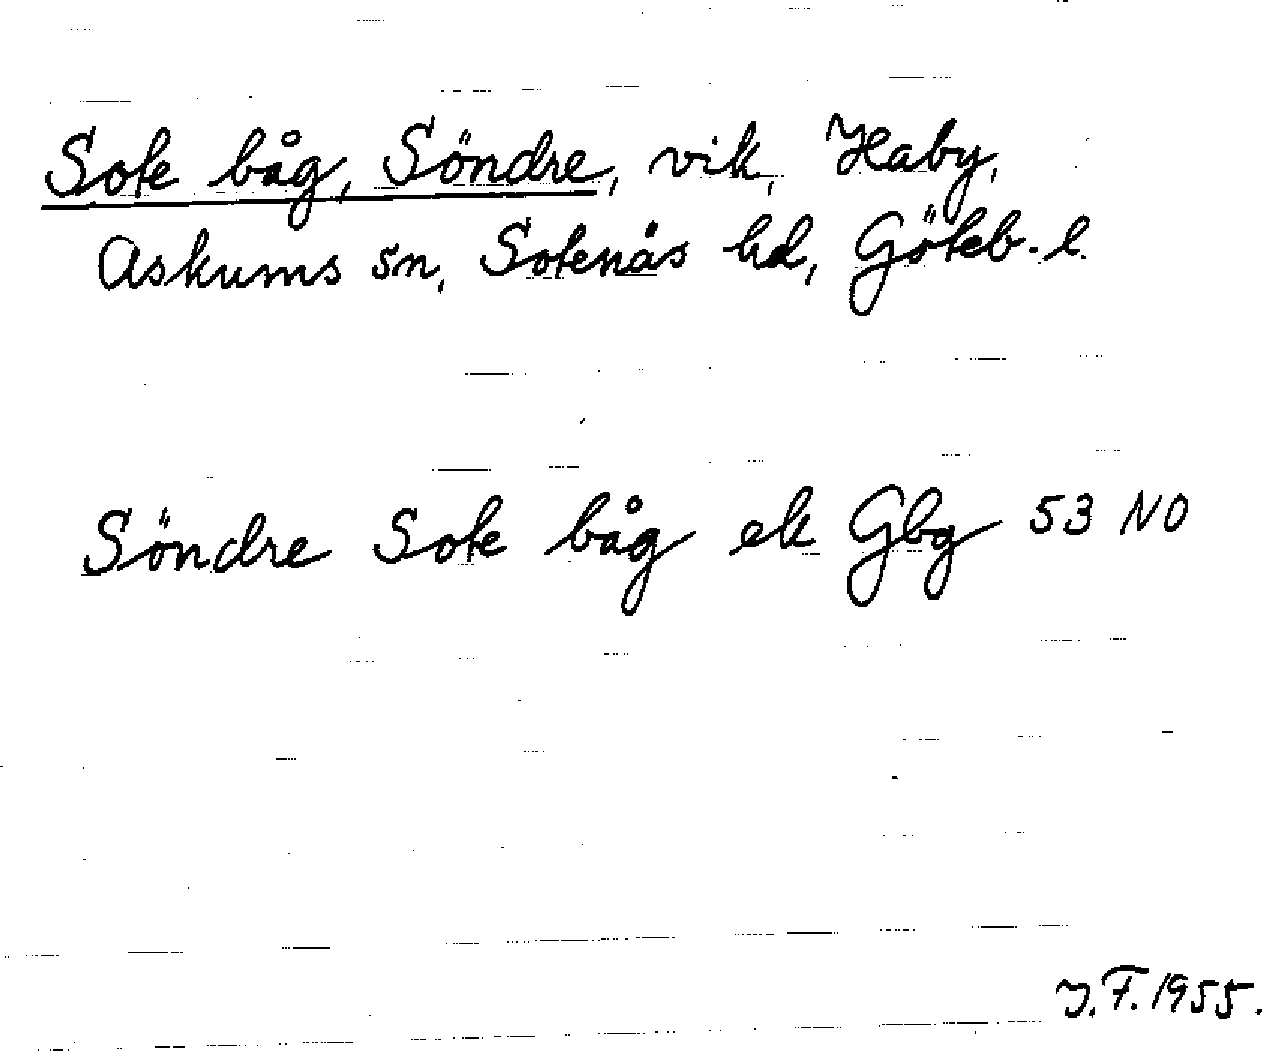 Sote båg, Söndre, vik, Haby,
Askums sn, Sotenäs hd, Göteb. l.
Söndre Sote båg ek Gbg 53 NO
J.F. 1955.